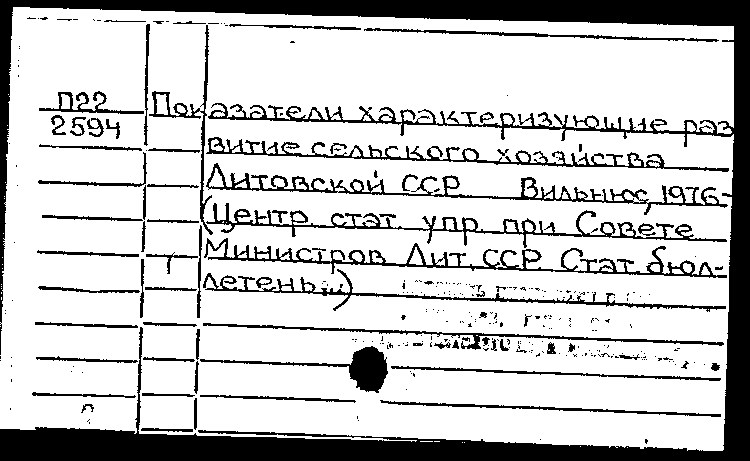 П22
2594
Показатели характеризующие раз
витие сельского хозяйства
Литовской ССР Вильнюс, 1976-
(Центр. стат. упр. при Совете
Министров Лит. ССР. Стат. бюл-
летень)